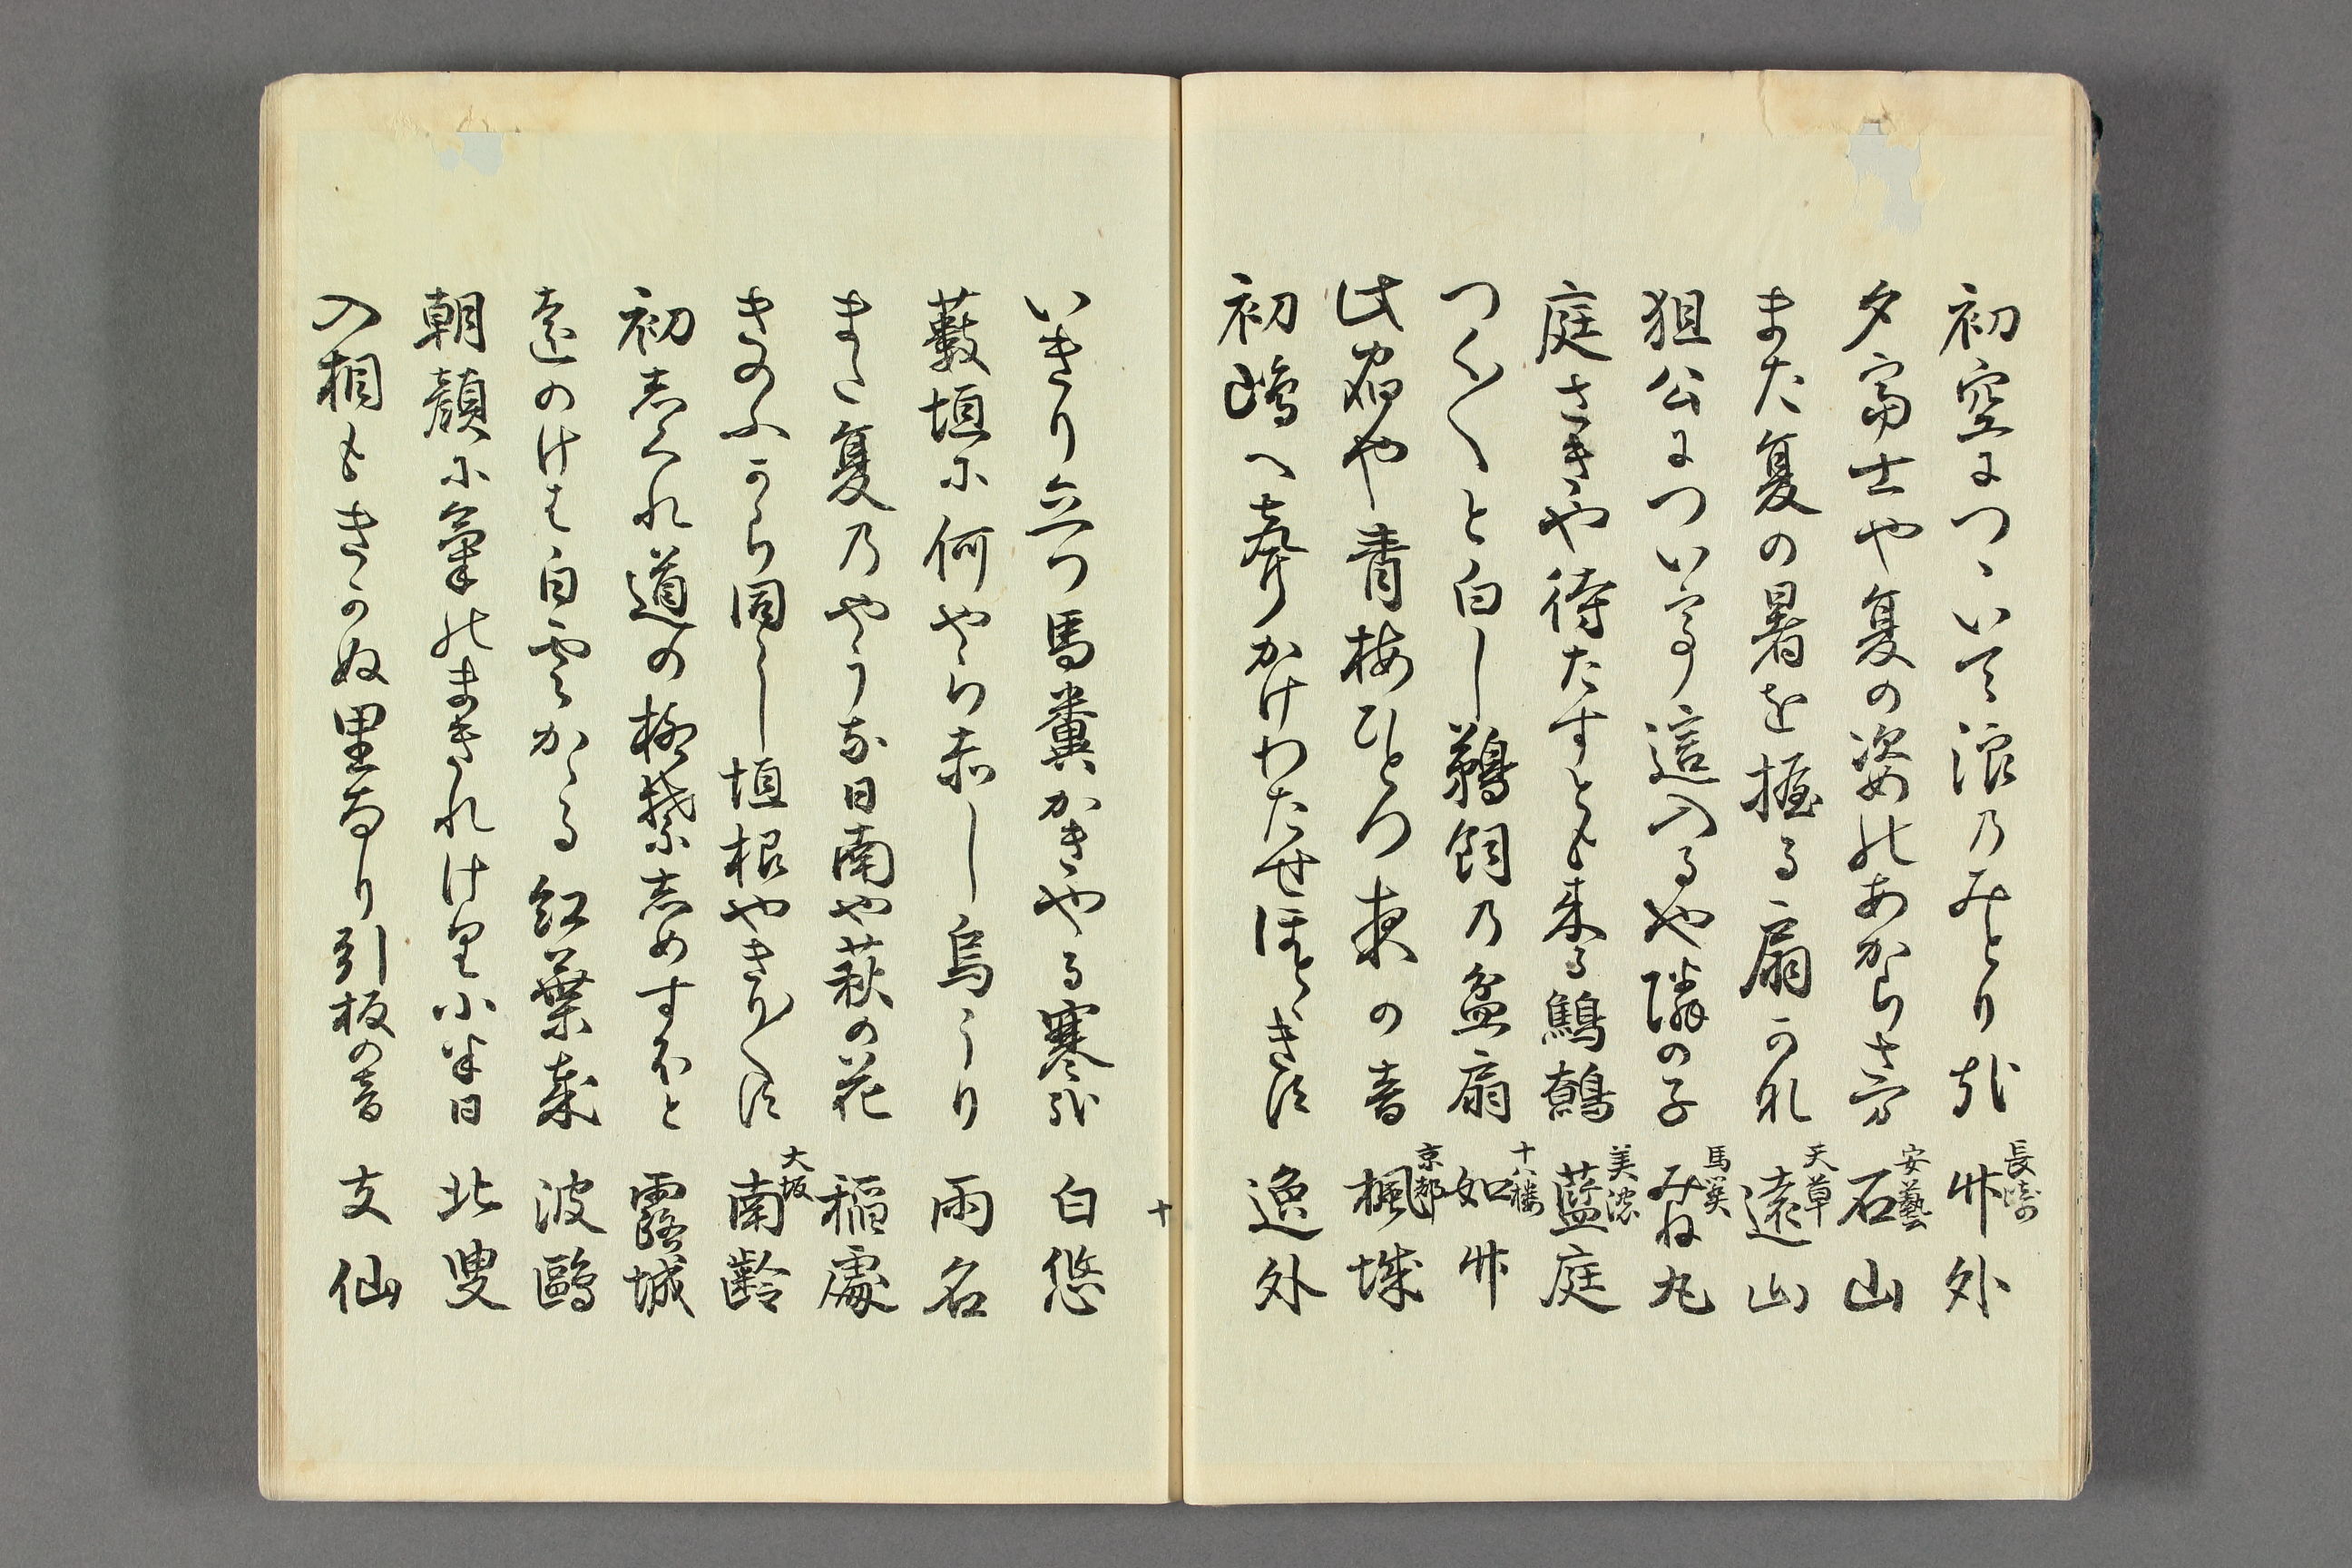 初空につゝいて浪のみとり哉 長崎 竹外
夕富士や夏の姿のあからさま 安藝 石山
また夏の暑を握る扇かな 天草 遠山
狙公につい這入るや隣の子 馬関 みね丸
庭さきや待たすとも来る鷦鷯 美濃 藍庭
つく〱と白し鵜飼の盆扇 十八楼 如竹
此宿や青梅ひとつ夜の音 京都 楓城
初嶋へ聲かけわたせほとゝきす 逸外
いきり立つ馬糞かきやる寒哉 白悠
藪垣に何やら赤し烏うり 雨名
また夏のやうな日南や萩の花 稲處
きのふから同し垣根やきり〱す 大坂 南齢
初しくれ道の極禁しめすほと 露城
遠のけは白雲かゝる紅葉哉 波鷗
朝顔に氣のまきれけり小半日 北叟
入相もきかぬ里なり引板の音 支仙
十